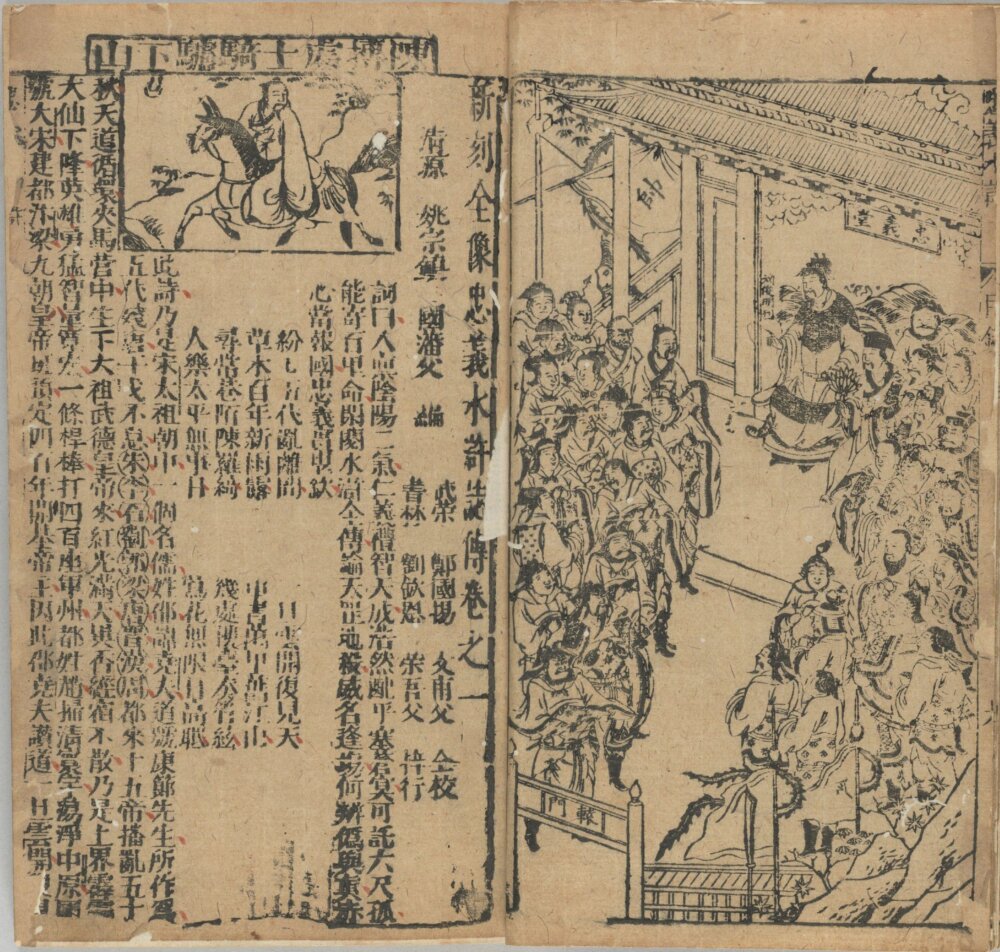 帥
忠義堂
轅門
陳摶處士騎驢下山
新刻全像忠義水滸誌傳卷之一
清源 姚宗鎮 國藩父 編
武榮 鄭國揚 文甫父 仝校
書林 劉欽恩 榮吾父 梓行
詞曰人稟陰陽二氣仁義禮智天成浩然配乎塞蒼冥可託六尺孤
能寄百里命閑閱水滸全傳論天罡地煞威名逢場何辨偽與真赤
心當報國忠義貫欽
紛紛五代亂離間 一旦雲開復見天
草木百年新雨露 車書萬里舊江山
尋常巷陌陳羅綺 幾處樓臺奏管絃
人樂太平無事日 鶯花無限日高眠
此詩乃是宋太祖朝中一個名儒姓邵諱堯夫道號康節先生所作為
五代殘唐干戈不息朱李石劉郭梁唐晉漢周都來十五帝播亂五十
秋天道循環夾馬營中生下太祖武德皇帝來紅光滿天異香經宿不散乃是上界霹靂
大仙下降英雄勇猛智量寬宏一條桿棒打四百座軍州都姓趙掃清寰宇蕩淨中原國
號大宋建都汴梁九朝皇帝班頭定四百年開基帝王因此邵堯夫讚道一旦雲開復見